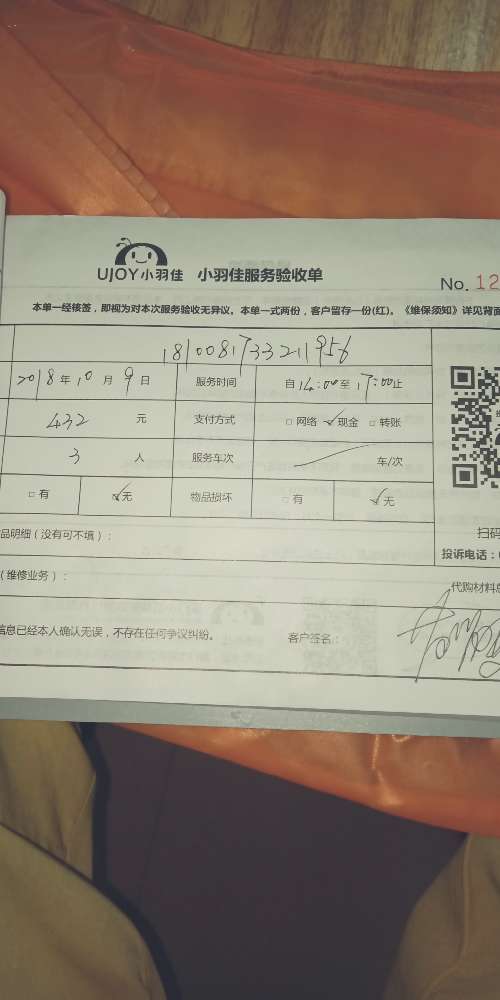 UJOY小羽佳 小羽佳服务验收单
No. 12
本单一经核签，即视为对本次服务验收无异议。本单一式两份，客户留存一份(红)。《维保须知》详见背面
1810081733211956
2018年10月9日 服务时间 自14:00至17:00止
432 元 支付方式 □网络 ☑现金 □转账
3 人 服务车次 车/次
□有 ☑无 物品损坏 □有 ☑无
品明细（没有可不填）：
扫码
投诉电话：
（维修业务）：
代购材料总
信息已经本人确认无误，不存在任何争议纠纷。 客户签名：